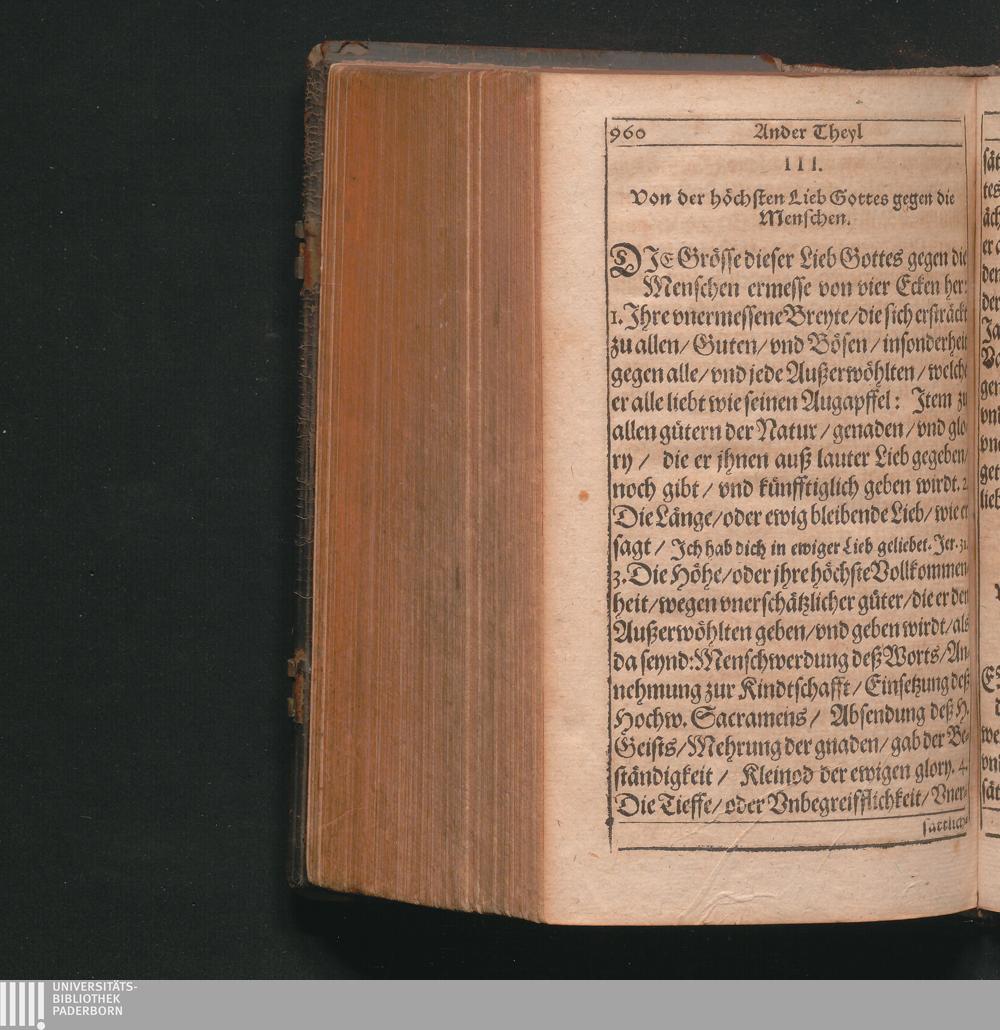 960 Ander Theyl
III.
Von der höchsten Lieb Gottes gegen die
Menschen.
DIE Grösse dieser Lieb Gottes gegen die
Menschen ermesse von vier Ecken her:
1. Ihre vnermessene Breyte/die sich ersträckt
zu allen/ Guten/ vnd Bösen/ insonderheit
gegen alle/ vnd jede Außerwöhlten/ welche
er alle liebt wie seinen Augapffel: Item zu
allen gütern der Natur/ genaden/ vnd glo
ry/ die er jhnen auß lauter Lieb gegeben/
noch gibt/ vnd künfftiglich geben wirdt. 2.
Die Länge/oder ewig bleibende Lieb/ wie er
sagt/ Ich hab dich in ewiger Lieb geliebet. Jer. 31.
3. Die Höhe/oder jhre höchste Vollkommen
heit/wegen vnerschätzlicher güter/die er den
Außerwöhlten geben/vnd geben wirdt/als
da seynd: Menschwerdung deß Worts/An-
nehmung zur Kindtschafft/ Einsetzung deß
Hochw. Sacramens/ Absendung deß H.
Geists/Mehrung der gnaden/ gab der Be-
ständigkeit/ Kleinod der ewigen glory. 4.
Die Tieffe/oder Vnbegreifflichkeit/ Vner-
sättlich-
UNIVERSITÄTS-
BIBLIOTHEK
PADERBORN